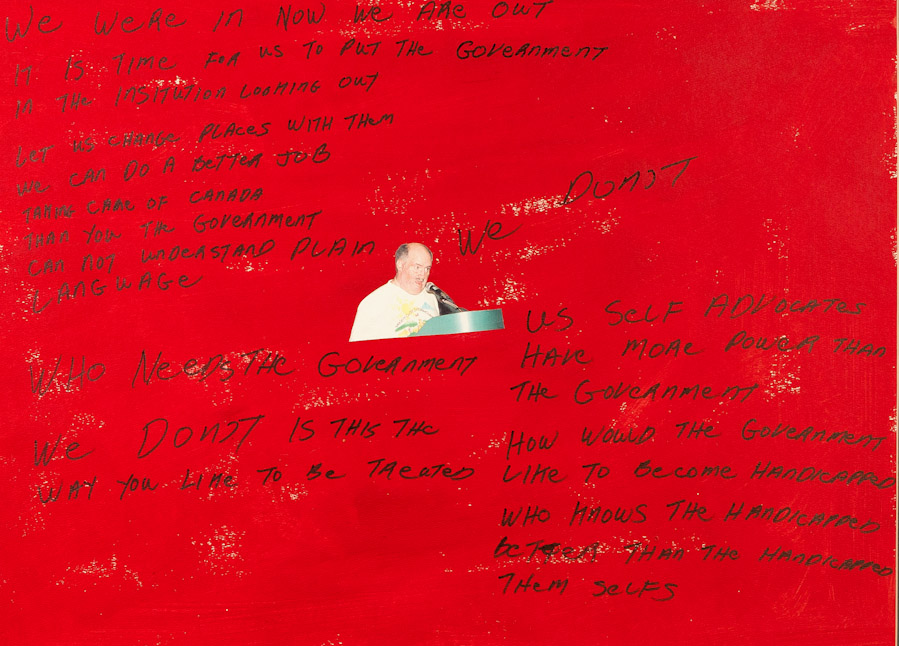 We WeRe In NOW We ARe OUT
IT IS TIME FOR US TO PUT THe GOVeRnMenT
In THe InSITUTIOn LOOKInG OUT
LeT US CHAnGe PLACes WITH THeM
We CAn DO A BeTTeR JOB
TAKInG CARe OF CANADA
THAn YOU THe GOVeRnMenT
CAn nOT UnDeRSTAnD PLAIn
LAnGWAGe
WHO NeeDS THe GOVeRnMenT
We DOnOT IS THIS THe
WAY YOU LIKe TO Be TReATeD
We DOnOT
US SeLF ADVOCATeS
HAVe MORe POWeR THAn
THe GOVeRnMenT
HOW WOULD THe GOVeRnMenT
LIKe TO BeCOMe HAnDICAPPeD
WHO KnOWS THe HAnDICAPPeD
BeTTeR THAn THe HAnDICAPPeD
THeM SeLFS